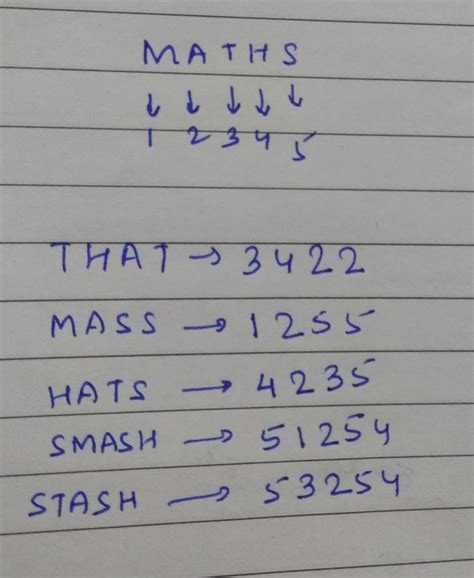 MATHS
↓ ↓ ↓ ↓ ↓
1 2 3 4 5
THAT → 3422
MASS → 1255
HATS → 4235
SMASH → 51254
STASH → 53254